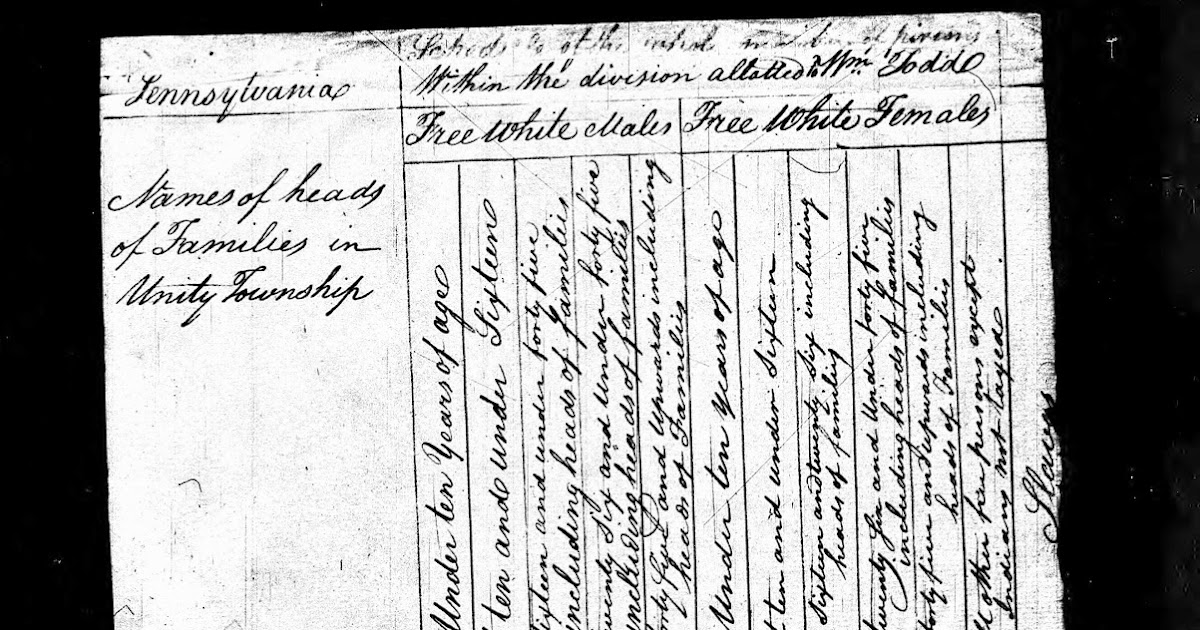 Schedule of the whole number of persons
Pennsylvania
Within the division allotted to Wm Todd
Free White Males
Free White Females
Names of heads
of Families in
Unity Township
Under ten Years of age
ten and under Sixteen
Sixteen and under forty five
including heads of families
twenty Six and under forty five
including heads of families
forty five and upwards including
heads of Families
Under ten years of age
ten and under Sixteen
Sixteen and twenty Six including
heads of families
twenty Six and under forty five
including heads of families
forty five and upwards including
heads of Families
All other free persons except
Indians not taxed
Slaves